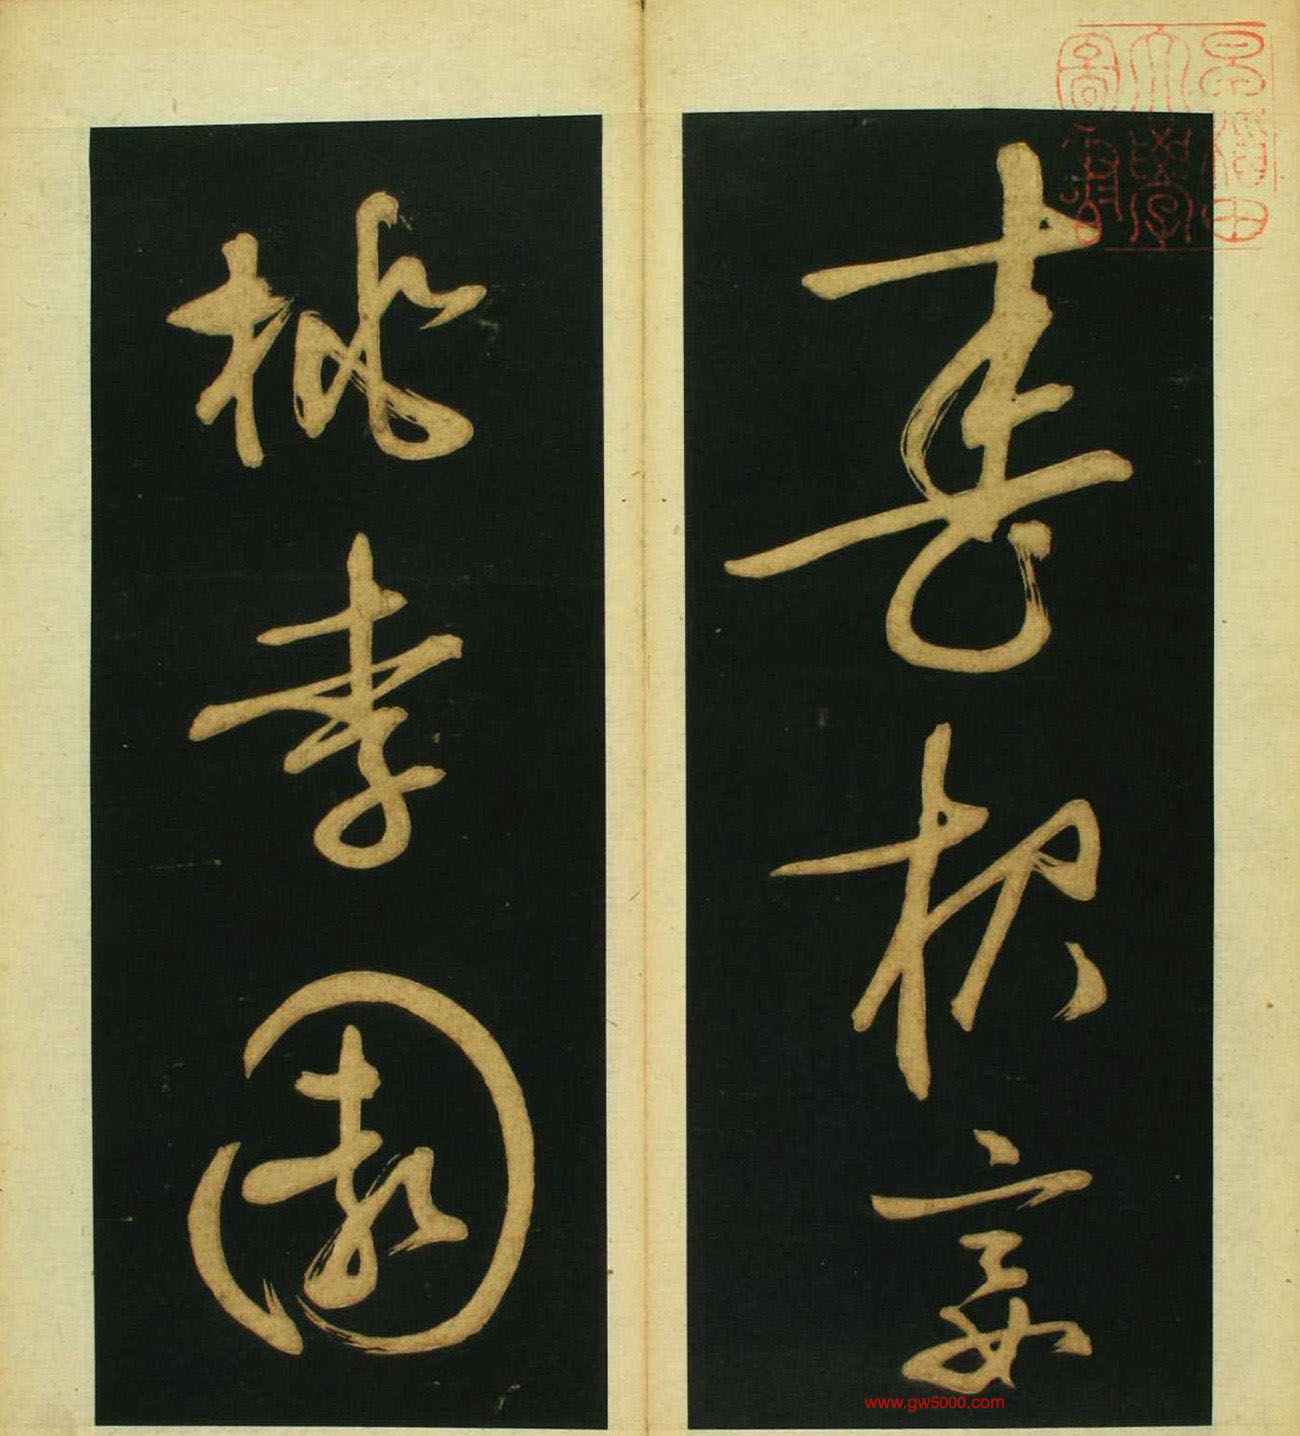 春夜宴
桃李園
www.gw5000.com